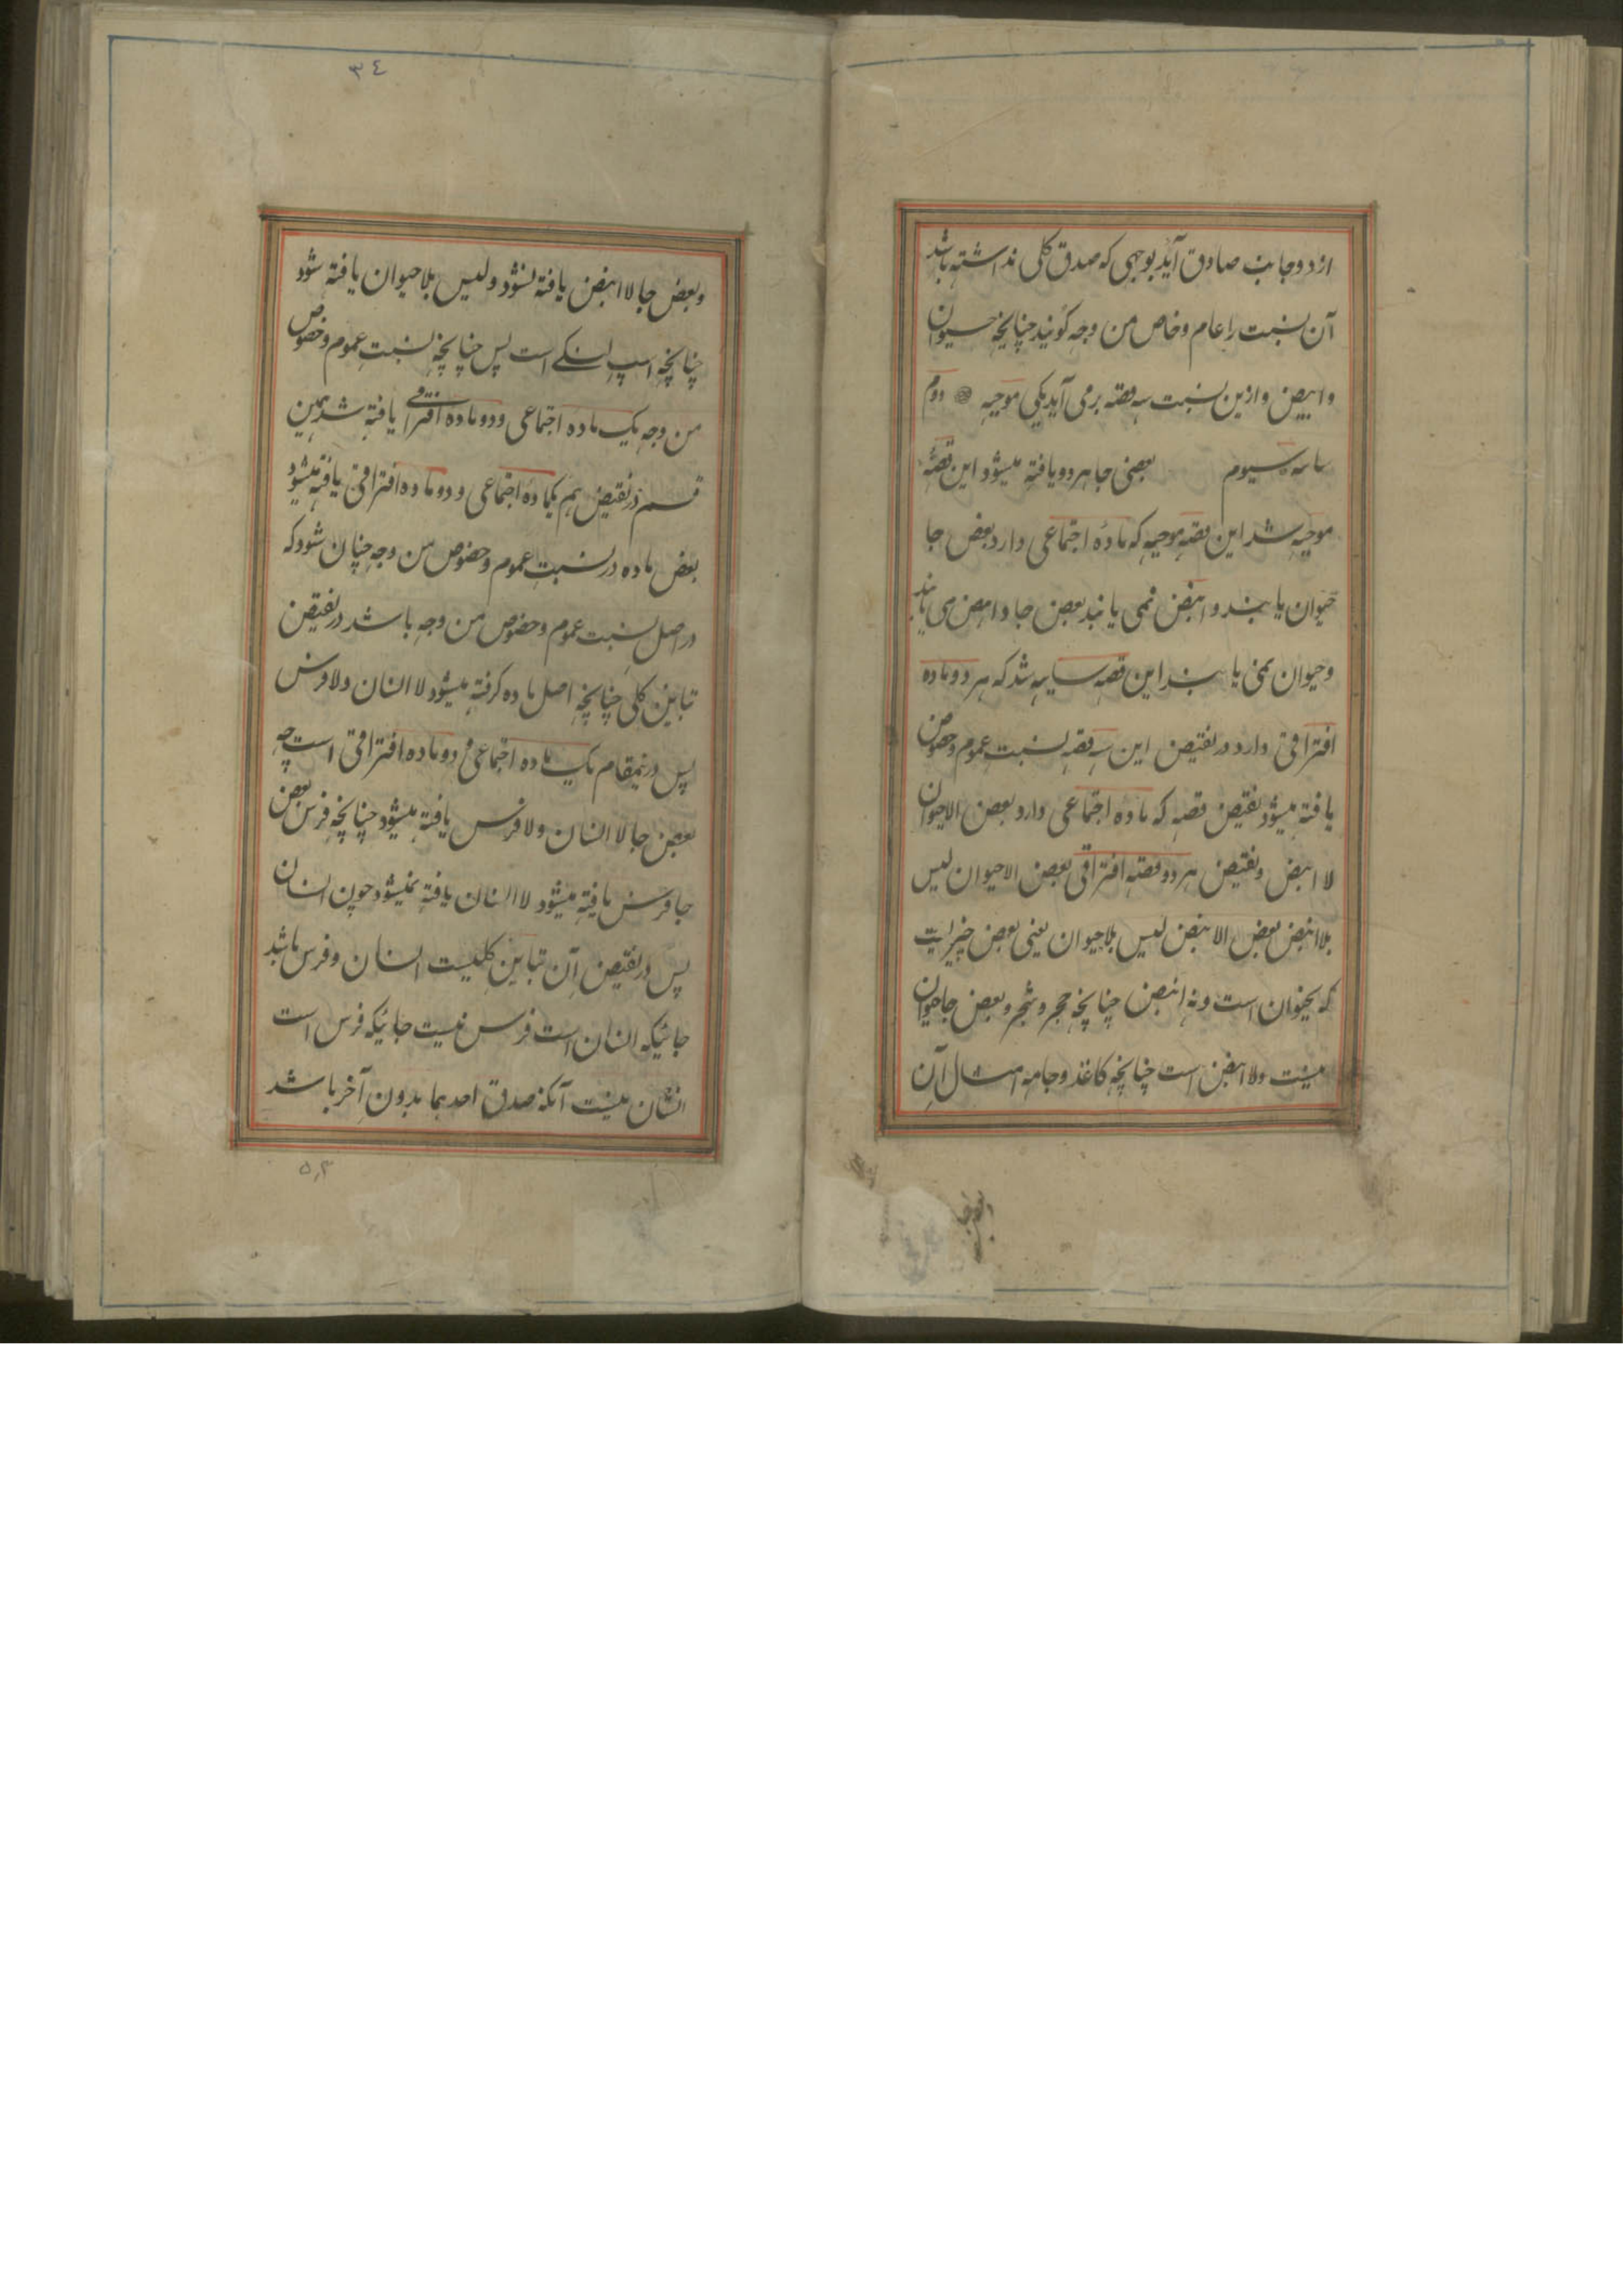 از دو جانب صادق آید بوجهی که صدق کلی نداشته باشد
آن نسبت را عام و خاص من وجه گویند چنانچه حیوان
و ابیض و ازین نسبت سه قضیه برمی آید یکی موجبه دوم
سالبه سیوم بعضی جا هر دو یافته میشود این قضیهٔ
موجبه شد این قضیه موجبه که مادهٔ اجتماعی دارد بعض جا
حیوان یابند و ابیض نمی یابند بعض جا و ابیض می یابند
و حیوان نمی یابند این قضیه سالبه شد که هر دو ماده
افتراقی دارد در نقیض این سه قضیه نسبت عموم و خصوص
یافته میشود نقیض قضیه که ماده اجتماعی دارد بعض الاحیوان
لا ابیض و نقیض هر دو قضیه افتراقی بعض الاحیوان لیس
بلا ابیض بعض الابیض لیس بلاحیوان یعنی بعض چیز است
که حیوان است و نه ابیض چنانچه حجر و شجر و بعض جا حیوان
نیست ولا ابیض است چنانچه کاغذ و جامه امثال آن
و بعض جا
٣٤
و بعض جا لا ابیض یافته نشود و لیس بلاحیوان یافته شود
چنانچه اسپ است پس چنانچه نسبت عموم و خصوص
من وجه یک ماده اجتماعی و دو ماده افتراقی یافته شد همین
قسم در نقیض هم یکماده اجتماعی و دو ماده افتراقی یافته میشود
بعض ماده در نسبت عموم و خصوص من وجه چنان شود که
در اصل نسبت عموم و خصوص من وجه باشد در نقیض
تباین کلی چنانچه اصل ماده گرفته میشود لا انسان و لا فرس
پس درینمقام یک ماده اجتماعی و دو ماده افتراقی است چه
بعض جا لا انسان و لا فرس یافته میشود چنانچه فرس بعض
جا فرس یافته میشود لا انسان یافته نمیشود چون انسان
پس در نقیض آن تباین کلیست انسان و فرس باشد
جائیکه انسان است فرس نیست جائیکه فرس است
انسان نیست آنکه صدق احدهما بدون آخر باشد